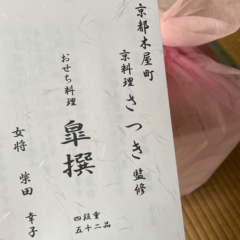 京都木屋町
京料理 さつき 監修
おせち料理
皐撰
四段重
五十二品
女将 柴田 幸子